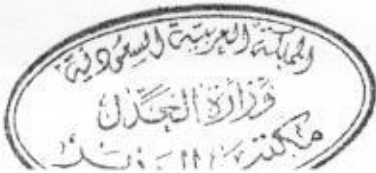 المملكة العربية السعودية
وزارة العدل
مكتب